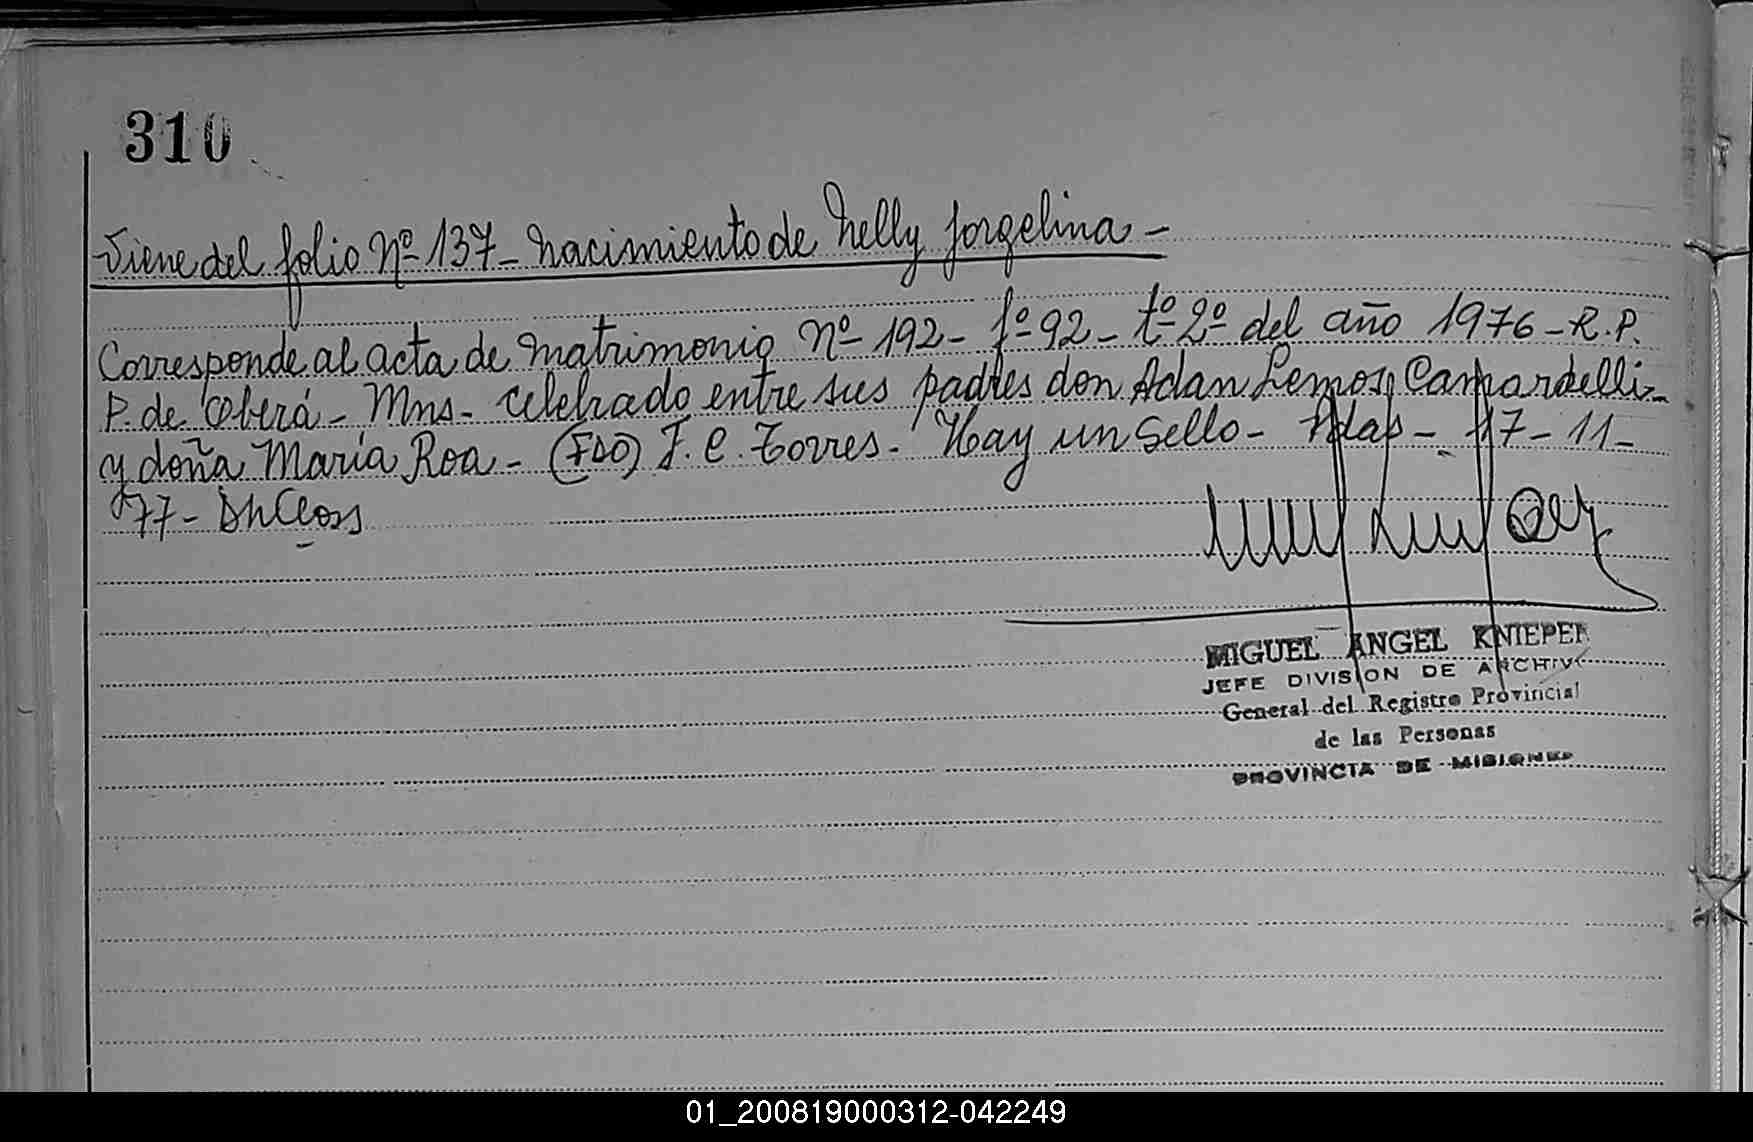 310
Viene del folio Nº 137 - Nacimiento de Nelly Jorgelina -
Corresponde al acta de Matrimonio Nº 192 - fº 92 - tº 2º del año 1976 - R.P.
P. de Oberá - Mns - celebrado entre sus padres don Adan Lemos Camardelli -
y doña Maria Roa - (FDO) J. C. Torres - Hay un Sello - Pdas - 17 - 11 -
77 -
MIGUEL ANGEL KNIEPER
JEFE DIVISION DE ARCHIVO
General del Registro Provincial
de las Personas
PROVINCIA DE MISIONES
01_200819000312-042249